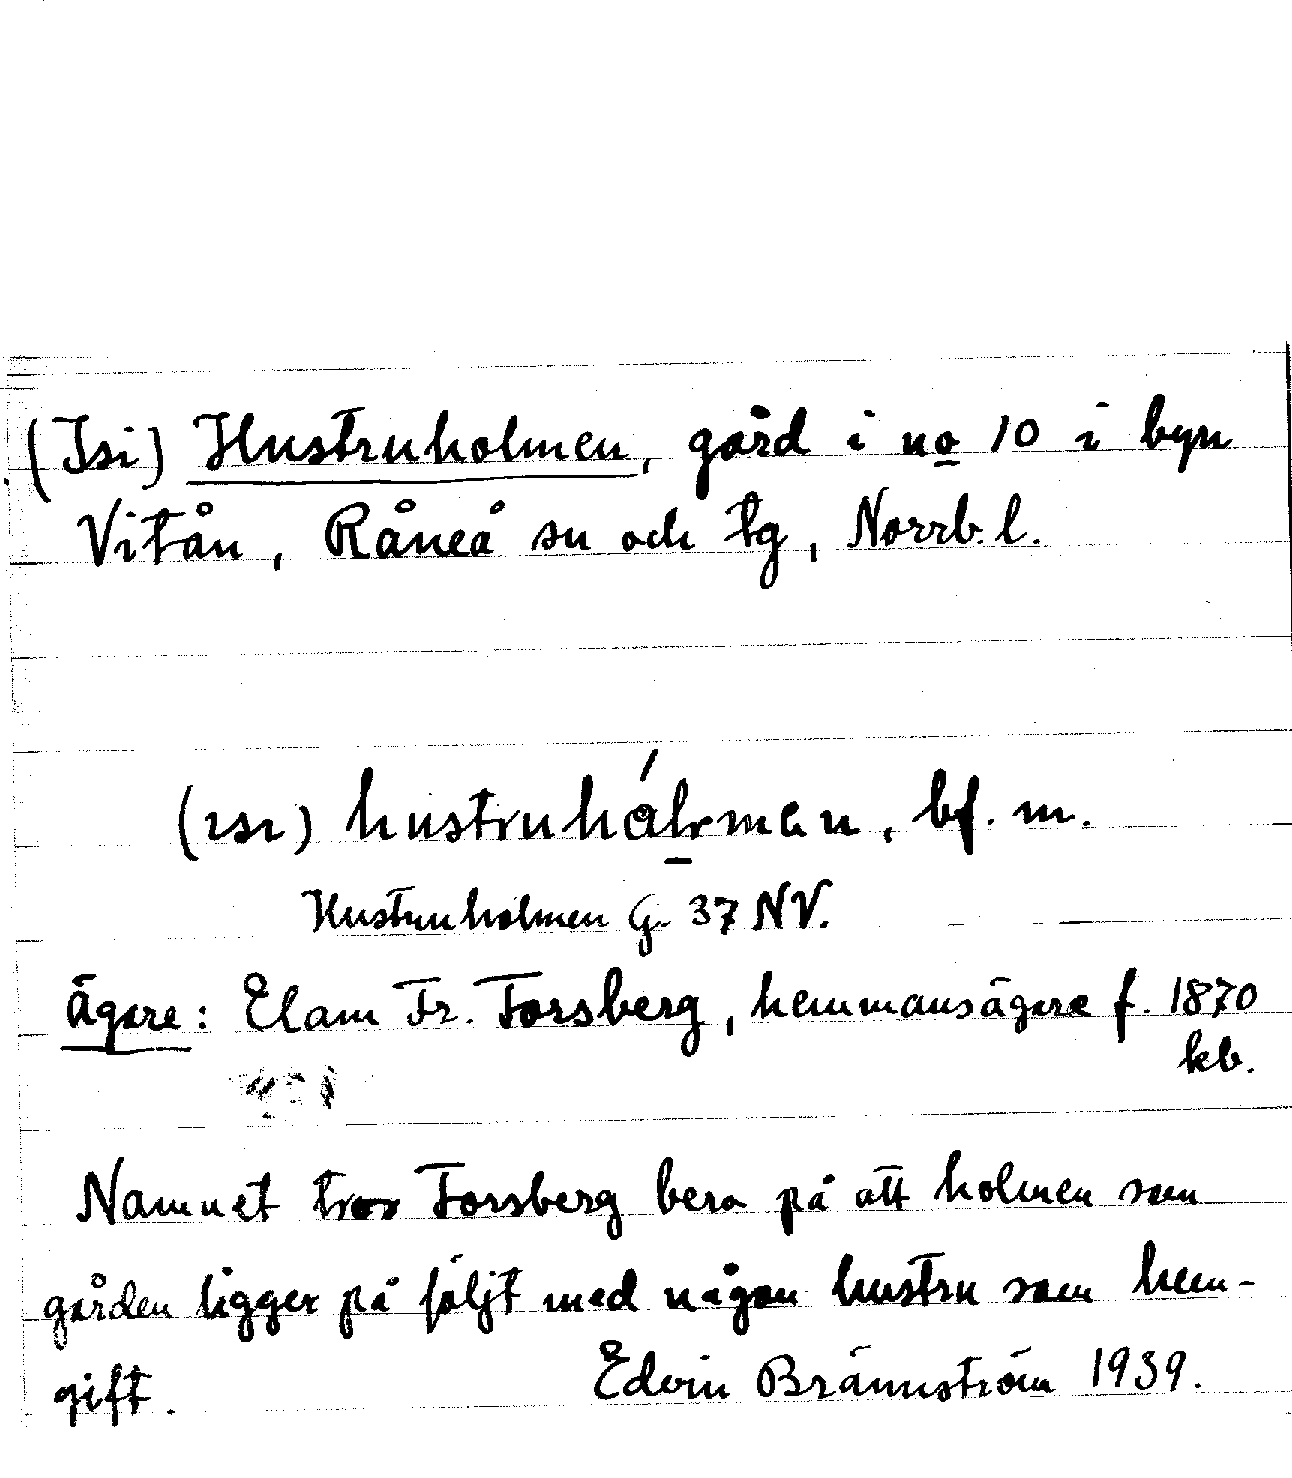 (Isi) Hustruholmen, gård i no 10 i byn
Vitån, Råneå sn och tg, Norrb. l.
(ısı) hustruhålmen, bf. m.
Hustruholmen G. 37 NV.
Ägare: Elam Fr. Forsberg, hemmansägare f. 1870
kb.
Namnet tror Forsberg bero på att holmen som
gården ligger på följt med någon hustru som hem-
gift. Edvin Brännström 1939.